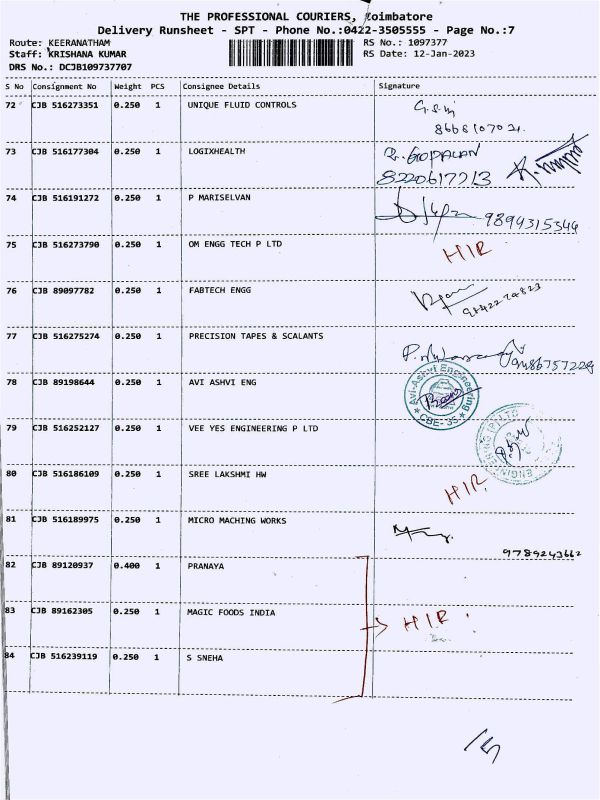 THE PROFESSIONAL COURIERS, Coimbatore
Delivery Runsheet - SPT - Phone No.:0422-3505555 - Page No.:7
Route: KEERANATHAM RS No.: 1097377
Staff: KRISHANA KUMAR RS Date: 12-Jan-2023
DRS No.: DCJB109737707
S No Consignment No Weight PCS Consignee Details Signature
72 CJB 516273351 0.250 1 UNIQUE FLUID CONTROLS
73 CJB 516177304 0.250 1 LOGIXHEALTH GOPALAN
8220617213
74 CJB 516191272 0.250 1 P MARISELVAN 9894315344
75 CJB 516273790 0.250 1 OM ENGG TECH P LTD HIR
76 CJB 89097782 0.250 1 FABTECH ENGG
77 CJB 516275274 0.250 1 PRECISION TAPES & SCALANTS
78 CJB 89198644 0.250 1 AVI ASHVI ENG Avi-Ashvi Engineering
★ CBE-35 ★
79 CJB 516252127 0.250 1 VEE YES ENGINEERING P LTD
80 CJB 516186109 0.250 1 SREE LAKSHMI HW HIR
81 CJB 516189975 0.250 1 MICRO MACHING WORKS
9789243662
82 CJB 89120937 0.400 1 PRANAYA
83 CJB 89162305 0.250 1 MAGIC FOODS INDIA HIR
84 CJB 516239119 0.250 1 S SNEHA